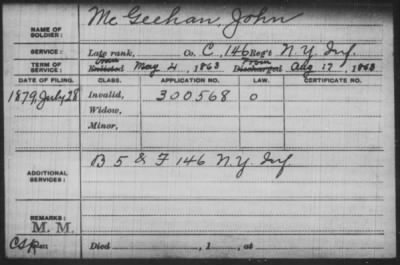 NAME OF SOLDIER: McGeehan, John
SERVICE: Late rank, Co. C, 146 Reg't N.Y. Inf.
TERM OF SERVICE: Enlisted May 4, 1863 Discharged Aug 17, 1863
DATE OF FILING. CLASS. APPLICATION NO. LAW. CERTIFICATE NO.
1879, July 28 Invalid, 300568 O
Widow,
Minor,
ADDITIONAL SERVICES: B 5 & F 146 N.Y. Inf
REMARKS:
M. M.
Died , 1 , at